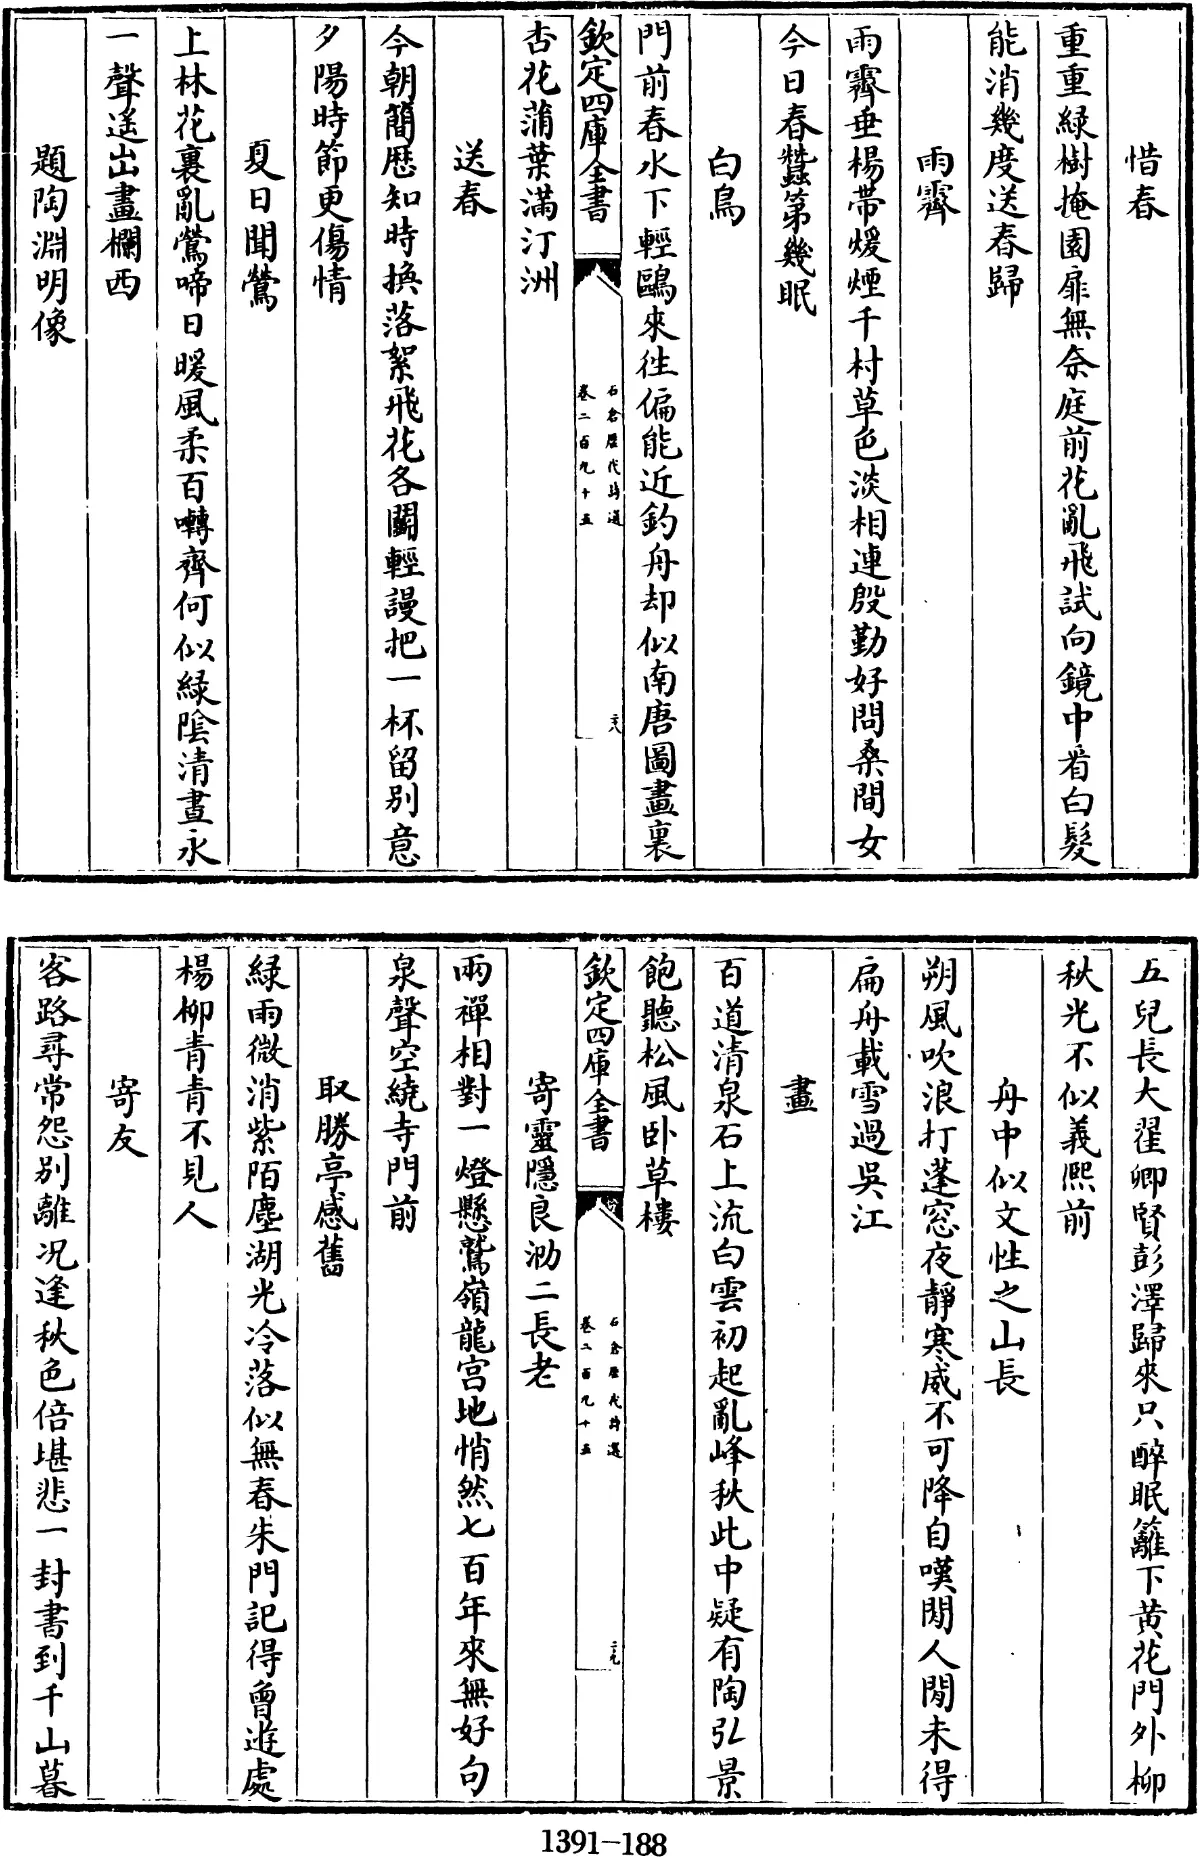 惜春
重重緑樹掩園扉無奈庭前花亂飛試向鏡中看白髮
能消幾度送春歸
雨霽
雨霽垂楊帶煖煙千村草色淡相連殷勤好問桑間女
今日春蠶第幾眠
白鳥
門前春水下輕鷗來往偏能近釣舟却似南唐圖畫裏
欽定四庫全書
石倉歷代詩選
卷二百九十五
二八
杏花蒲葉滿汀洲
送春
今朝簡歴知時換落絮飛花各鬬輕謾把一杯留别意
夕陽時節更傷情
夏日聞鶯
上林花裏亂鶯啼日暖風柔百囀齊何似緑陰清晝永
一聲遥出畫欄西
題陶淵明像
五兒長大翟卿賢彭澤歸來只醉眠籬下黄花門外柳
秋光不似義熙前
舟中似文性之山長
朔風吹浪打蓬窓夜靜寒威不可降自嘆閒人閒未得
扁舟載雪過吳江
畫
百道清泉石上流白雲初起亂峰秋此中疑有陶弘景
飽聽松風卧草樓
欽定四庫全書
石倉歷代詩選
卷二百九十五
二九
寄靈隱良泐二長老
兩禪相對一燈懸鷲嶺龍宫地悄然七百年來無好句
泉聲空繞寺門前
取勝亭感舊
緑雨微消紫陌塵湖光冷落似無春朱門記得曾逰處
楊柳青青不見人
寄友
客路尋常怨别離况逢秋色倍堪悲一封書到千山暮
1391-188